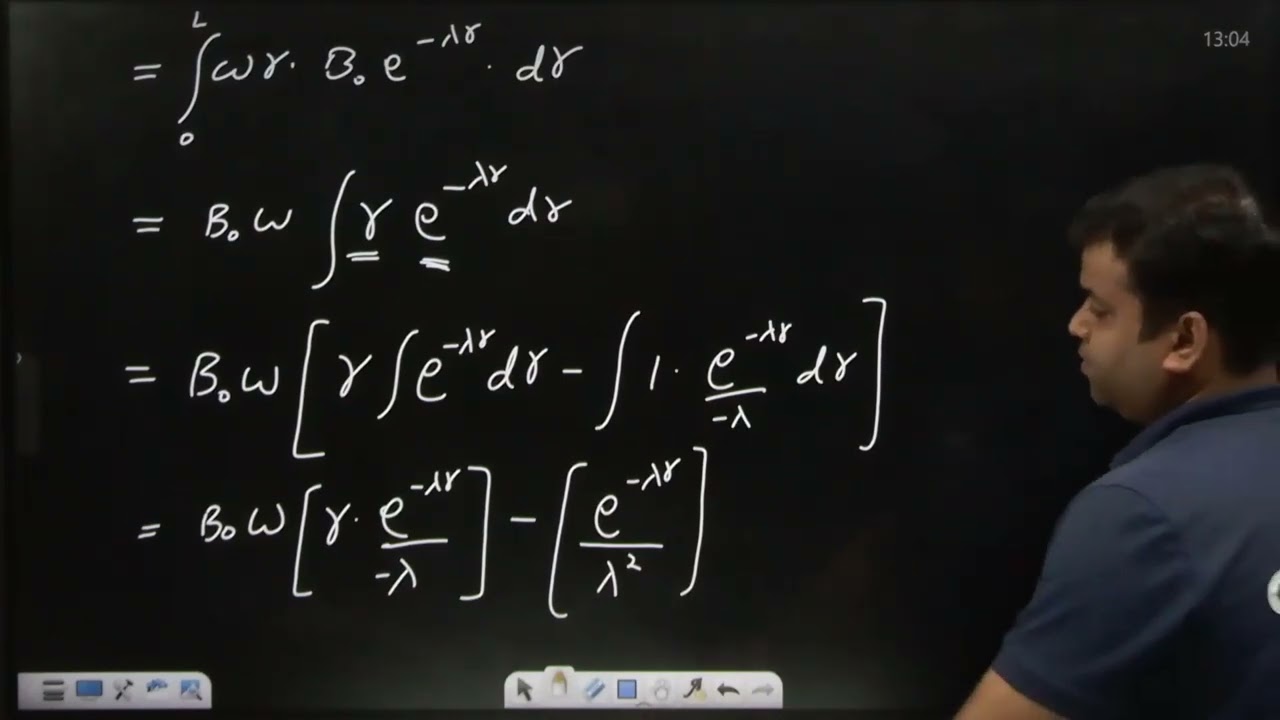 13:04
= ∫₀ᴸ ωr · B₀ e^{-λr} · dr
= B₀ω ∫ r e^{-λr} dr
= B₀ω [ r ∫ e^{-λr} dr - ∫ 1 · e^{-λr}/-λ dr ]
= B₀ω [ r · e^{-λr}/-λ ] - [ e^{-λr}/λ² ]